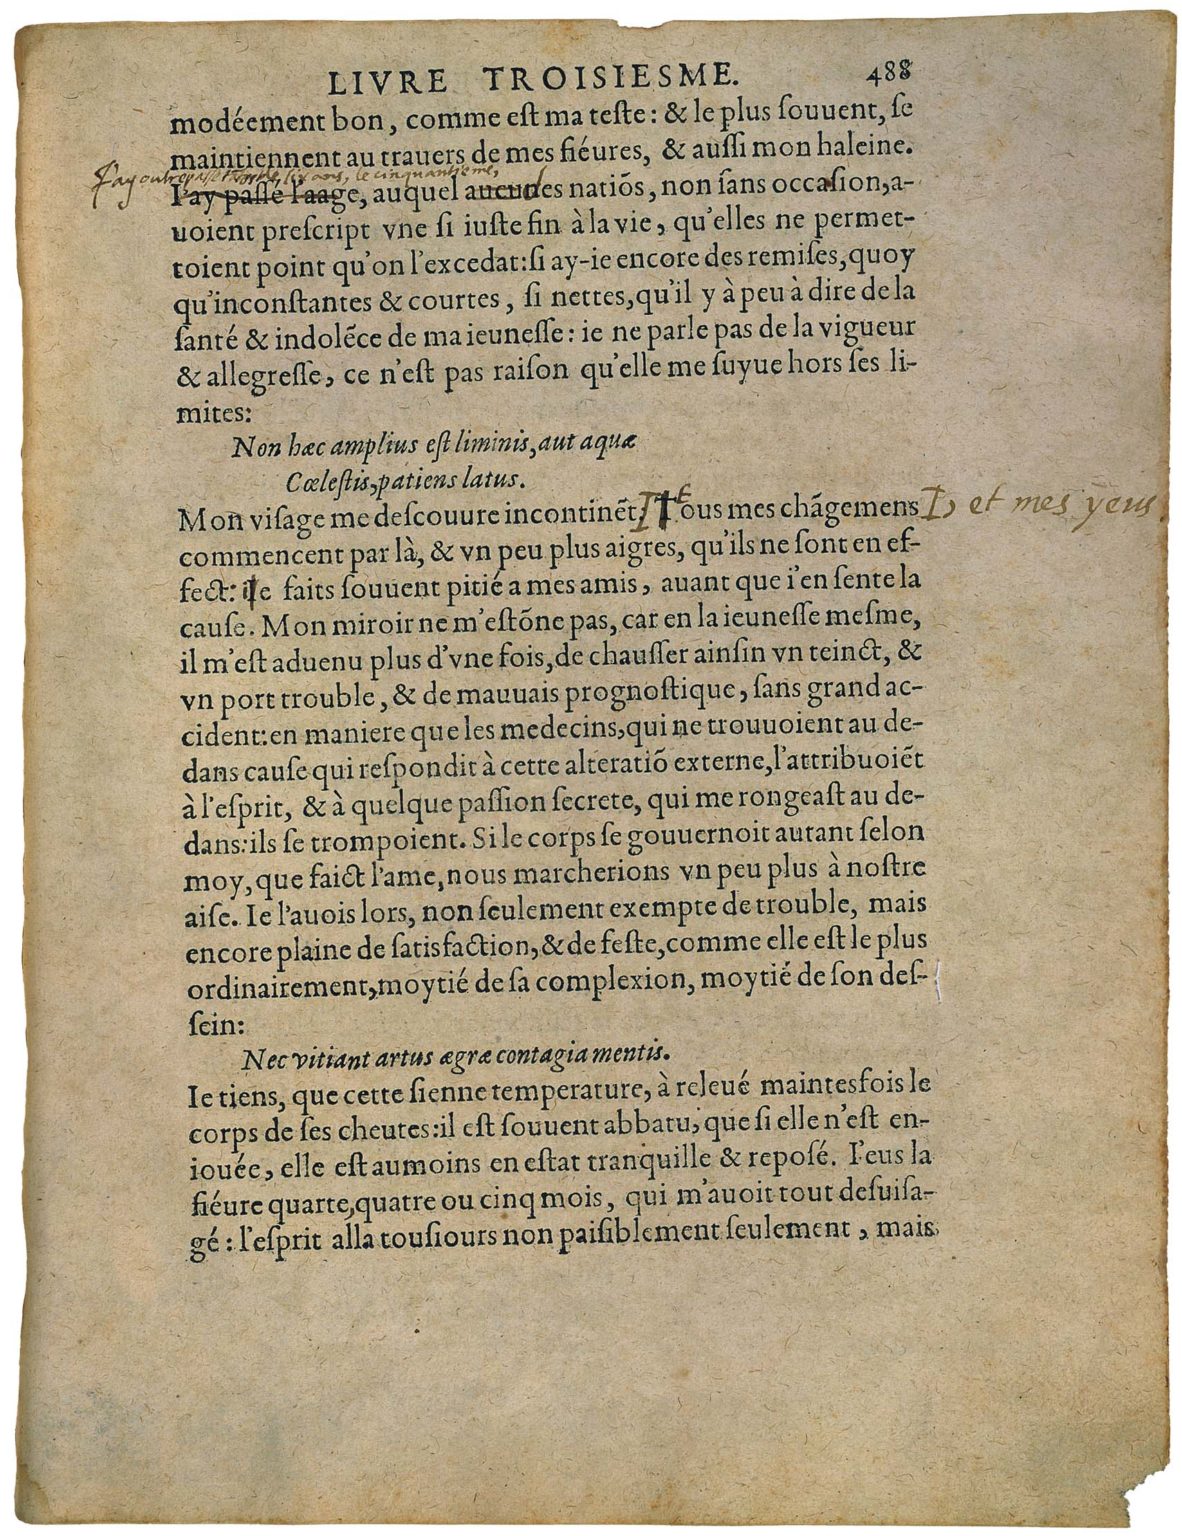 LIVRE TROISIESME. 488
modéement bon, comme eſt ma teſte: & le plus ſouuent, ſe
maintiennent au trauers de mes fiéures, & auſſi mon haleine.
J'ay outrepasse six ans, le cinquantieme,
I'ay paſſé l'aage, auquel aucunes natiõs, non ſans occaſion, a-
uoient preſcript vne ſi iuſte fin à la vie, qu'elles ne permet-
toient point qu'on l'excedat: ſi ay-ie encore des remiſes, quoy
qu'inconſtantes & courtes, ſi nettes, qu'il y à peu à dire de la
ſanté & indolẽce de ma ieuneſſe: ie ne parle pas de la vigueur
& allegreſſe, ce n'eſt pas raiſon qu'elle me ſuyue hors ſes li-
mites:
Non hæc amplius eſt liminis, aut aquæ
Cœleſtis, patiens latus.
Mon viſage me deſcouure incontinẽt, Tous mes chãgemens , et mes yeus
commencent par là, & vn peu plus aigres, qu'ils ne ſont en ef-
fect: ie faits ſouuent pitié a mes amis, auant que i'en ſente la
cauſe. Mon miroir ne m'eſtõne pas, car en la ieuneſſe meſme,
il m'eſt aduenu plus d'vne fois, de chauſſer ainſin vn teinct, &
vn port trouble, & de mauuais prognoſtique, ſans grand ac-
cident: en maniere que les medecins, qui ne trouuoient au de-
dans cauſe qui reſpondit à cette alteratiõ externe, l'attribuoiẽt
à l'eſprit, & à quelque paſſion ſecrete, qui me rongeaſt au de-
dans: ils ſe trompoient. Si le corps ſe gouuernoit autant ſelon
moy, que faict l'ame, nous marcherions vn peu plus à noſtre
aiſe. Ie l'auois lors, non ſeulement exempte de trouble, mais
encore plaine de ſatisfaction, & de feſte, comme elle eſt le plus
ordinairement, moytié de ſa complexion, moytié de ſon deſ-
ſein:
Nec vitiant artus ægræ contagia mentis.
Ie tiens, que cette ſienne temperature, à releué maintesfois le
corps de ſes cheutes: il eſt ſouuent abbatu, que ſi elle n'eſt en-
iouée, elle eſt aumoins en eſtat tranquille & repoſé. I'eus la
fiéure quarte, quatre ou cinq mois, qui m'auoit tout deſuiſa-
gé: l'eſprit alla touſiours non paiſiblement ſeulement, mais